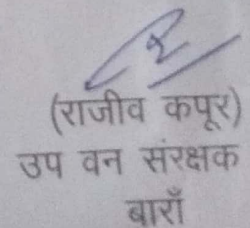 (राजीव कपूर)
उप वन संरक्षक
बाराँ